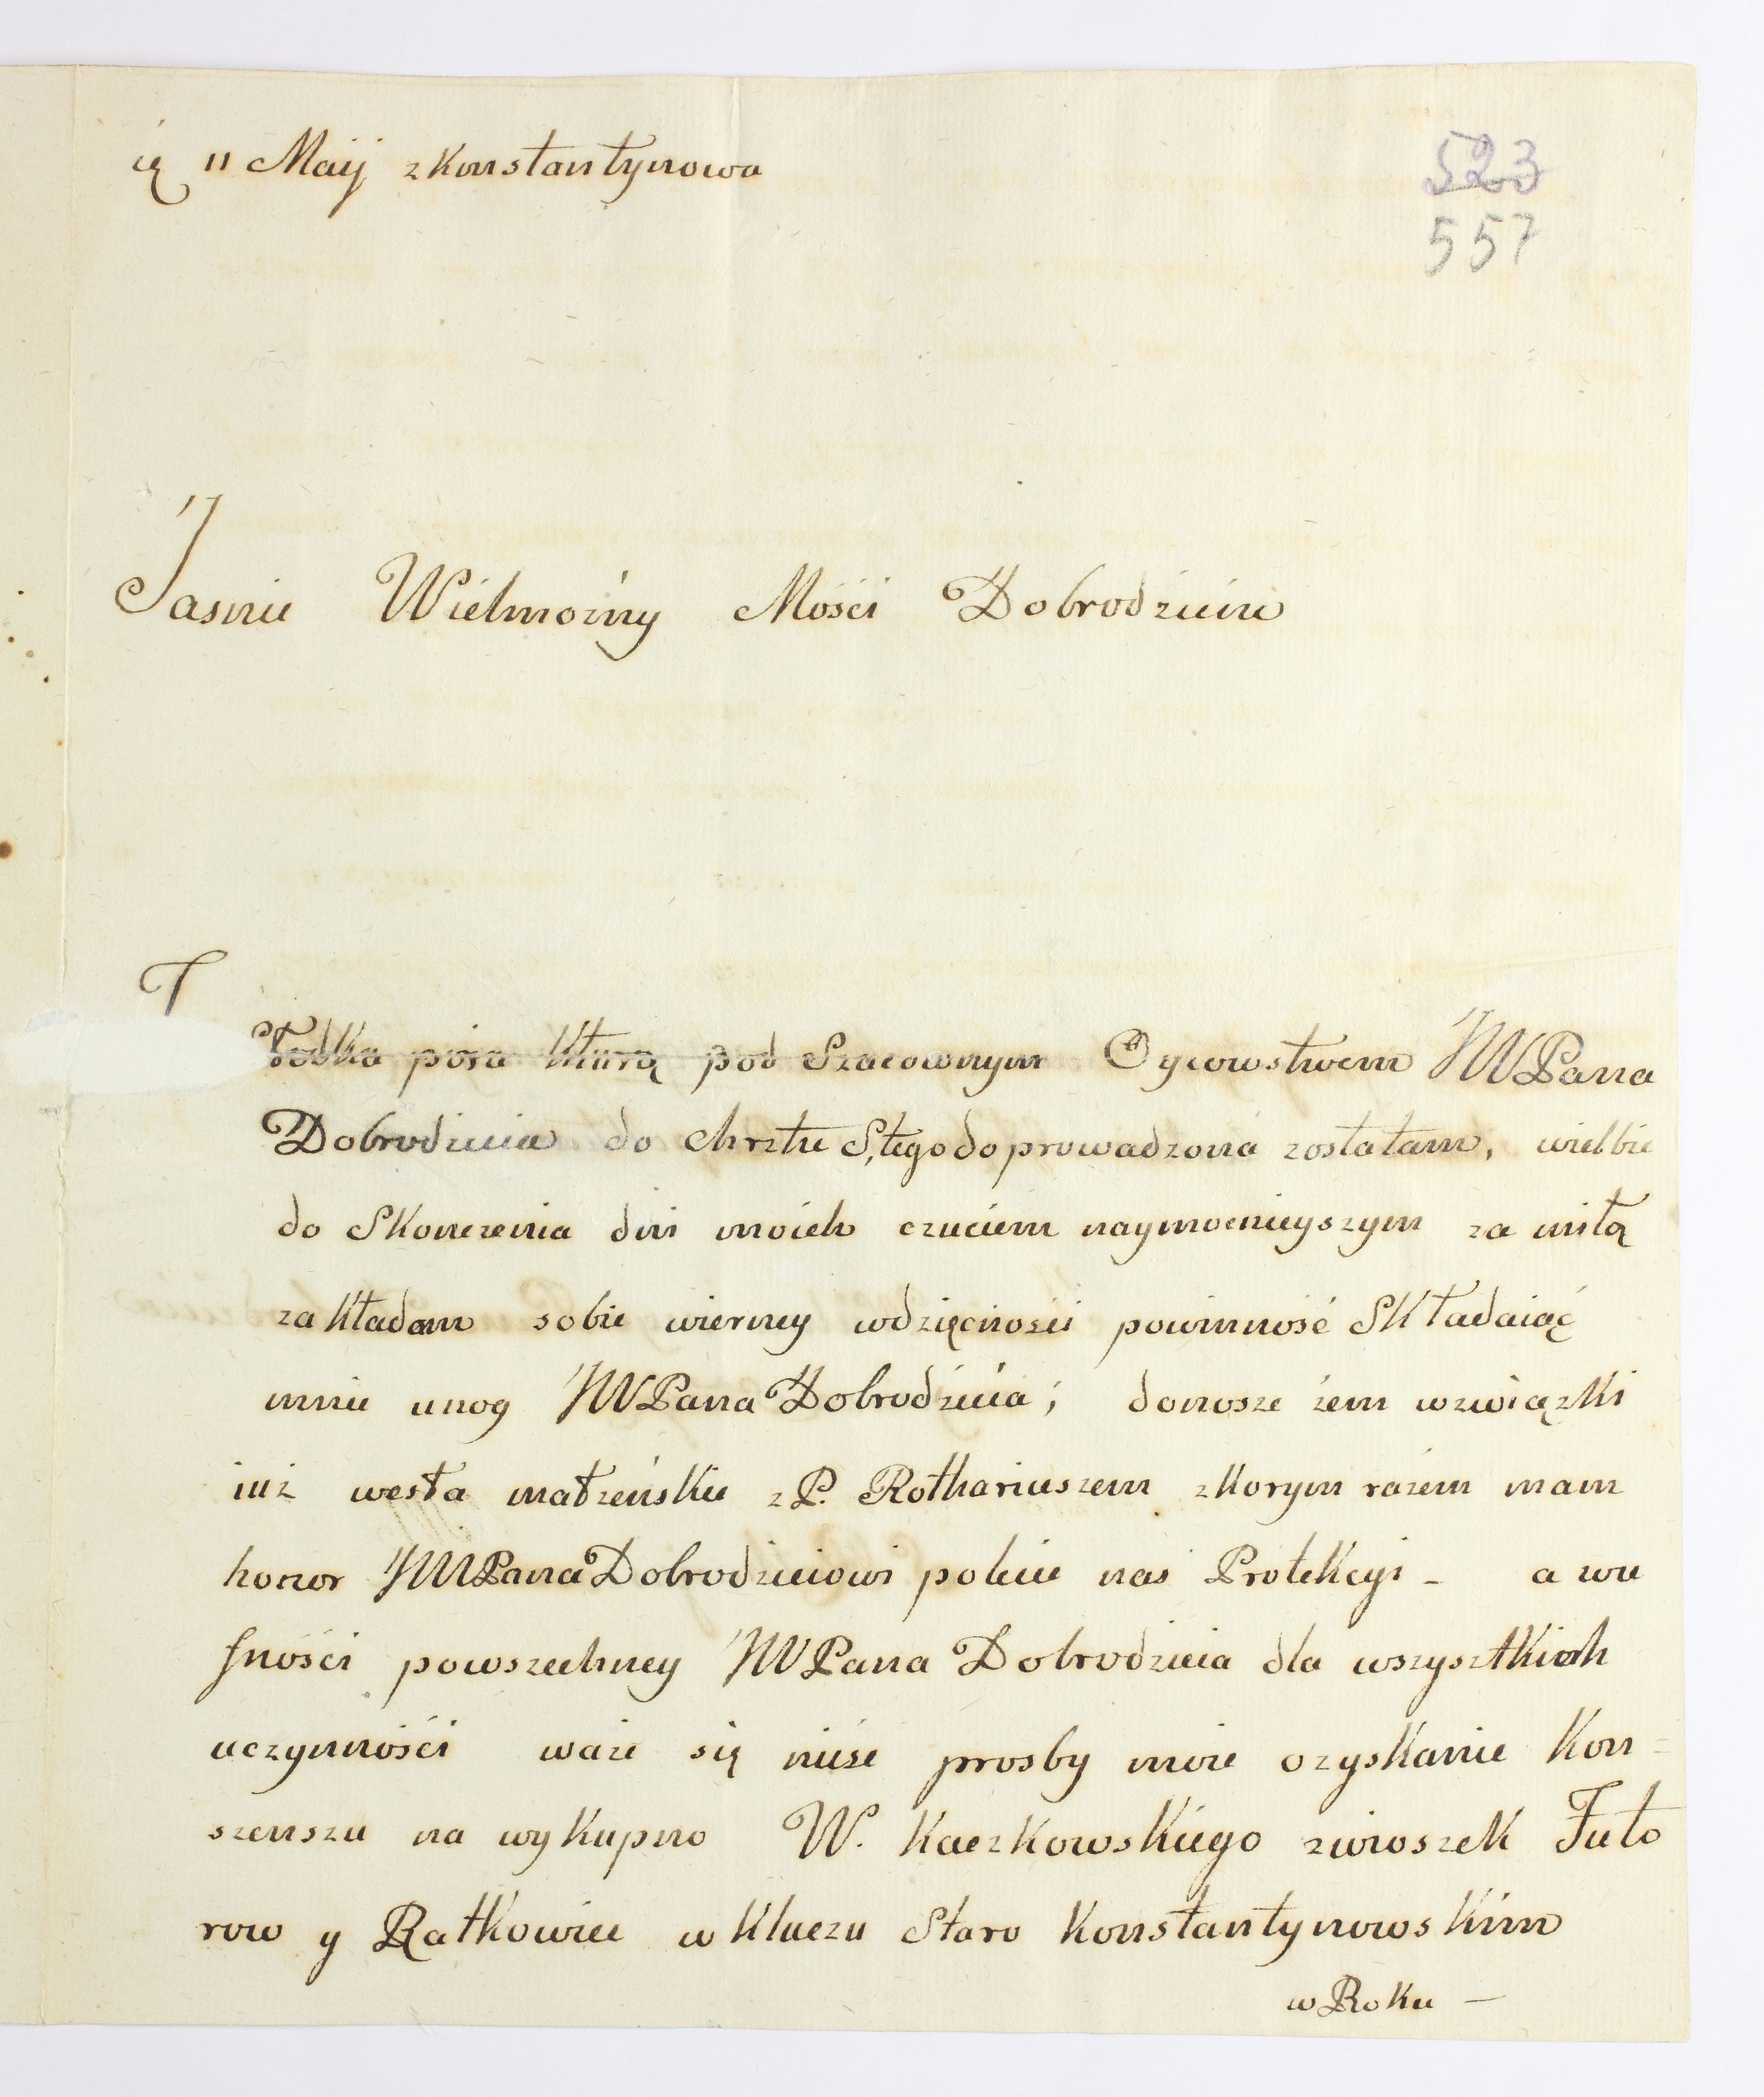 ię 11 Maij z Konstantynowa
523
557
Jasnie Wielmożny Mości Dobrodzieiu
T
Słodka pora kturą pod Szacownym Oycowstwem JWPana
Dobrodzieia do chrztu S,tego doprowadzona zostałam, wielbie
do Skonczenia dni moich czuciem naymocnieyszym za miłą
zakładam sobie wierney wdzięcności powinność Składaiąć
mnie unog JWPana Dobrodzieia; donosze żem wzwiązki
iuż wesła małżeńskie z P. Rothariuszem zkorym razem mam
honor JWPana Dobrodzieiowi polecic nas Protekcyi - a wu
fności powszechney JWPana Dobrodzieia dla wszysztkich
uczynnośći waże się nieść prosby moie ozyskanie Kon=
szenszu na wykupno W. Kaczkowskiego zwioszek Futo
row y Ratkowiec w Kluczu Staro Konstantynowskim
w Roku -